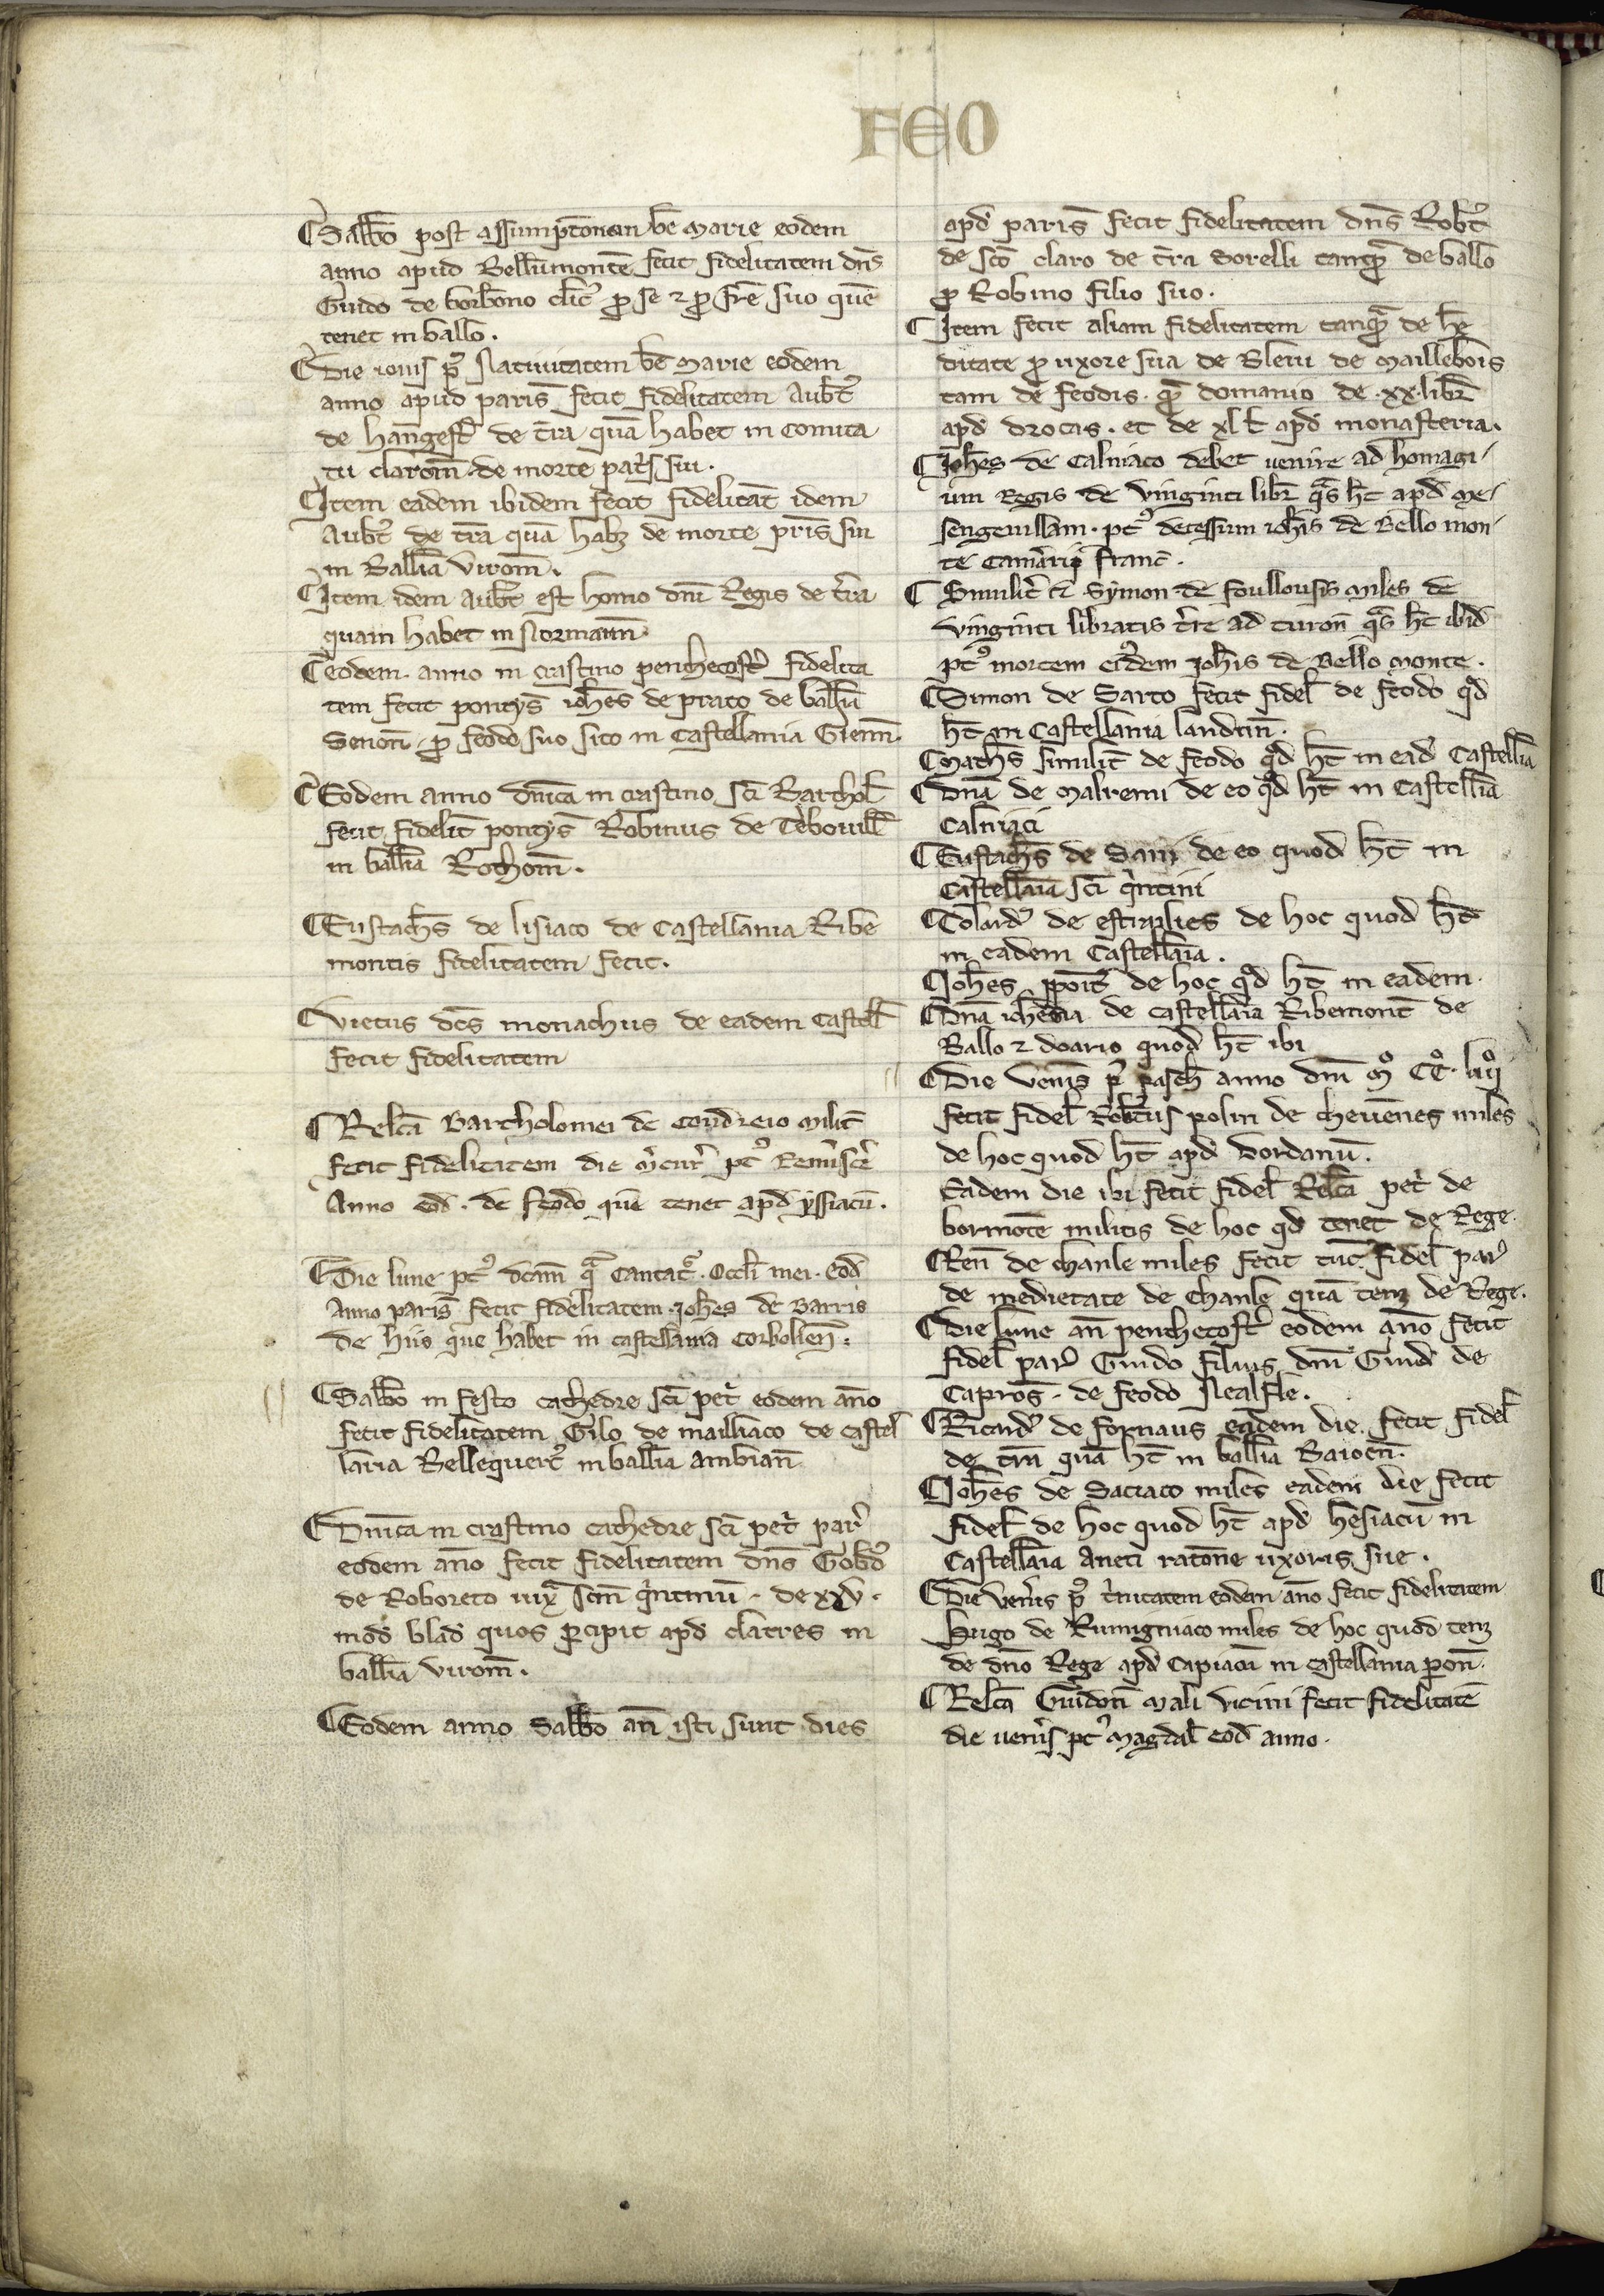 FEO
¶ Sabbō post assumptōnem bē marie eodem
anno apud Bellūmontē fecit fidelitatem dn̄s
Guido de borbōno clic̄ ꝓ se ⁊ ꝓ fr̄e suo quē
tenet in ballo.
¶ Die iouis p̄ꝰ natiuitatem bē Marie eodem
anno apud paris̄ fecit fidelitatem Aubt̄ꝰ
de hangest̄ de t̄ra quā habet in comita
tu clarom̄ de morte pat̄s sui.
¶ Item eadem ibidem fecit fidelitat̄ idem
Aubt̄ de t̄ra quā habꝫ de morte pr̄is sui
in Ballīa virom̄.
¶ Item idem Aubt̄ est homo dn̄i Regis de t̄ra
quam habet in Normann̄.
¶ Eodem anno in crastino penthecost̄ fidelita
tem fecit pontys̄ ioh̄es de prato de ballīa
Senon̄ ꝓ feodo suo sito in Castellania Giem̄.
¶ Eodem anno dn̄ica in crastino sc̄i Barthol̄
fecit fidelit̄ pontys̄ Robinus de Tebouill̄
in ballīa Rothom̄.
¶ Eustach̄s de lisiaco de Castellania Ribe
montis fidelitatem fecit.
¶ Vietus dc̄s monachus de eadem Castell̄
fecit fidelitatem
¶ Relc̄a Bartholomei de Condreio milit̄
fecit fidelitatem die m̄cur̄ pt̄ꝰ Remīsc̄e
Anno eod̄. de feodo quē tenet apd̄ yssiacū.
¶ Die lune pt̄ꝰ dc̄am qᵃ Cantat̄. Oculi mei. eod̄
Anno paris̄ fecit fidelitatem ioh̄es de Barris
de hiis que habet in castellania Corbolien̄.
¶ Sabbō in festo cathedre sc̄i pet̄ eodem an̄o
fecit fidelitatem Gilo de mailliaco de castel
lānia Bellequerc̄ in ballīa ambian̄
¶ Dn̄ica in crastino cathedre sc̄i pet̄ par̄
eodem an̄o fecit fidelitatem dn̄s Gobt̄ꝰ
de Roboreto iuxᵃ sc̄m q̄ntinū. de xxv.
mod̄ blad̄ quos ꝑcipit apd̄ clatres in
ballīa virom̄.
¶ Eodem anno Sabbō an̄ isti sunt dies
apd̄ paris̄ fecit fidelitatem dn̄s Robt̄ꝰ
de sc̄o claro de t̄ra dorelli tanqᵃ de ballo
ꝓ Robino filio suo.
¶ Item fecit aliam fidelitatem tanqᵃ de h̄e
ditate ꝓ uxore sua de Bleui de maillebois
tam de feodis. qᵃ domanio de .xx. libr̄
apd̄ drocas. et de xl t̄ apd̄ monasteria.
¶ Ioh̄es de Calniaco debet uenire ad homagi
um Regis de vinginti libr̄ qᵃs h̄t apd̄ me
sengeuillam. ptꝰ decessum ioh̄is de Bello mon
te Camerarii Franc̄.
¶ Similit̄ & Symon de foullousis miles de
vinginti libratis t̄re ad turon̄ qᵃs h̄t ibid̄
ptꝰ mortem eiꝰdem ioh̄is de Bello monte.
¶ Simon de Sarto fecit fidel̄ de feodo qd̄
h̄t in Castellania landun̄.
¶ Math̄s similit̄ de feodo qd̄ h̄t in ead̄ Castell̄ia
¶ Dn̄a de malremi de eo qd̄ h̄t in Castell̄ia
Calniaci
¶ Eustach̄s de Sani de eo quod h̄t in
Castell̄aīa sc̄i q̄ntini
¶ Colardꝰ de estraplies de hoc quod h̄t
in eadem Castell̄aīa.
¶ Ioh̄es p̄poīt̄ de hoc qd̄ h̄t in eadem.
¶ Dn̄a de castell̄aīa Ribemont̄ de
Ballo ⁊ doario quod h̄t ibi
¶ Die ven̄is p̄ꝰ pasch̄ anno dn̄i mº CCº. liiijº
fecit fidel̄ Robt̄us polin de cheuēnes miles
de hoc quod h̄t apd̄ dordanū.
Eadem die ibi fecit fidel̄ Relc̄a pet̄ de
bormōte militis de hoc qd̄ tenet de Rege.
¶ Ren̄ de chanle miles fecit tūc fidel̄ par̄
de medietate de Chanle quā tenꝫ de Rege.
¶ Die lune an̄ penthecost̄ eodem an̄o fecit
fidel̄ par̄ Guido filius dn̄i Guid̄ de
Capros̄. de feodo Nealfle.
¶ Ricardꝰ de fornaus eadem die fecit fidel̄
de t̄ra quā h̄t in ballīa Baiocn̄.
¶ Ioh̄es de Saciaco miles eadem die fecit
fidel̄ de hoc quod h̄t apd̄ hesiacū in
Castell̄aīa Aneti ratōne uxoris sue.
¶ Die ven̄is p̄ꝰ t̄nitatem eodem an̄o fecit fidelitatem
Hugo de Rumigniaco miles de hoc quod tenꝫ
de dn̄o Rege apd̄ Capiacū in castellania ꝑon̄.
¶ Relc̄a Guidon̄ mali vicini fecit fidelitatē
die uen̄is ptꝰ magdal̄ eod̄ anno.